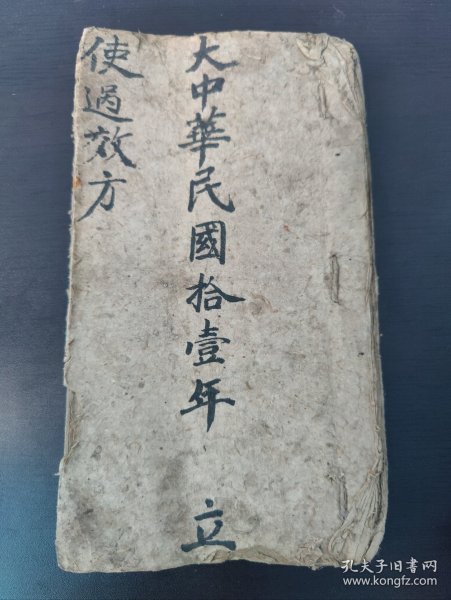 大中華民國拾壹年 立
使過效方
孔夫子旧书网
www.kongfz.com